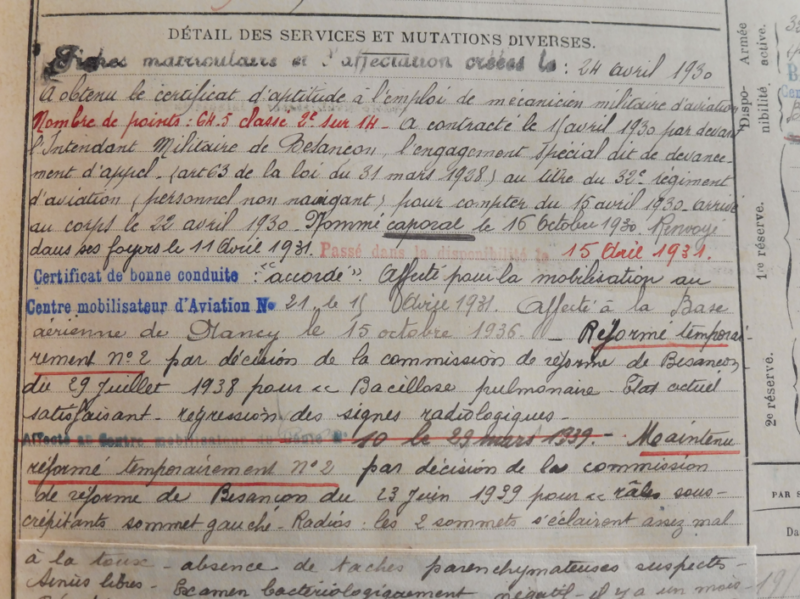 DÉTAIL DES SERVICES ET MUTATIONS DIVERSES.
Fiches matriculaire et d'affectation créées le : 24 avril 1930
A obtenu le certificat d'aptitude à l'emploi de mécanicien militaire d'aviation
Nombre de points : 64.5 classé 2e sur 14 - A contracté le 15 avril 1930 par devant
l'Intendant Militaire de Besançon, l'engagement spécial dit de devance-
ment d'appel - (art 63 de la loi du 31 mars 1928) au titre du 32e régiment
d'aviation (personnel non navigant) pour compter du 15 avril 1930 - arrivé
au corps le 22 avril 1930. Nommé caporal le 16 Octobre 1930. Renvoyé
dans ses foyers le 11 Avril 1931. Passé dans la disponibilité le 15 Avril 1931.
Certificat de bonne conduite : "accordé". Affecté pour la mobilisation au
Centre mobilisateur d'Aviation No 21 le 15 1931. Affecté à la Base
aérienne de Nancy le 15 octobre 1936. - Réformé tempora-
rement no 2 par décision de la commission de réforme de Besançon
du 29 Juillet 1938 pour << Bacillose pulmonaire - Etat actuel
satisfaisant - regression des signes radiologiques -
Affecté au Centre mobilisateur du Génie No 10 le 29 mars 1939. - Maintenu
réformé temporairement No 2 par décision de la commission
de réforme de Besançon du 23 Juin 1939 pour << râles sous-
crépitants sommet gauche - Radios : les 2 sommets s'éclairent assez mal
à la toux - absence de taches parenchymateuses suspects -
Sinus libres - Examen bactériologiquement négatif - il y a un mois -
Armée active.
Dispo-
nibilité,
1re réserve.
2e réserve.
PAR S
Da